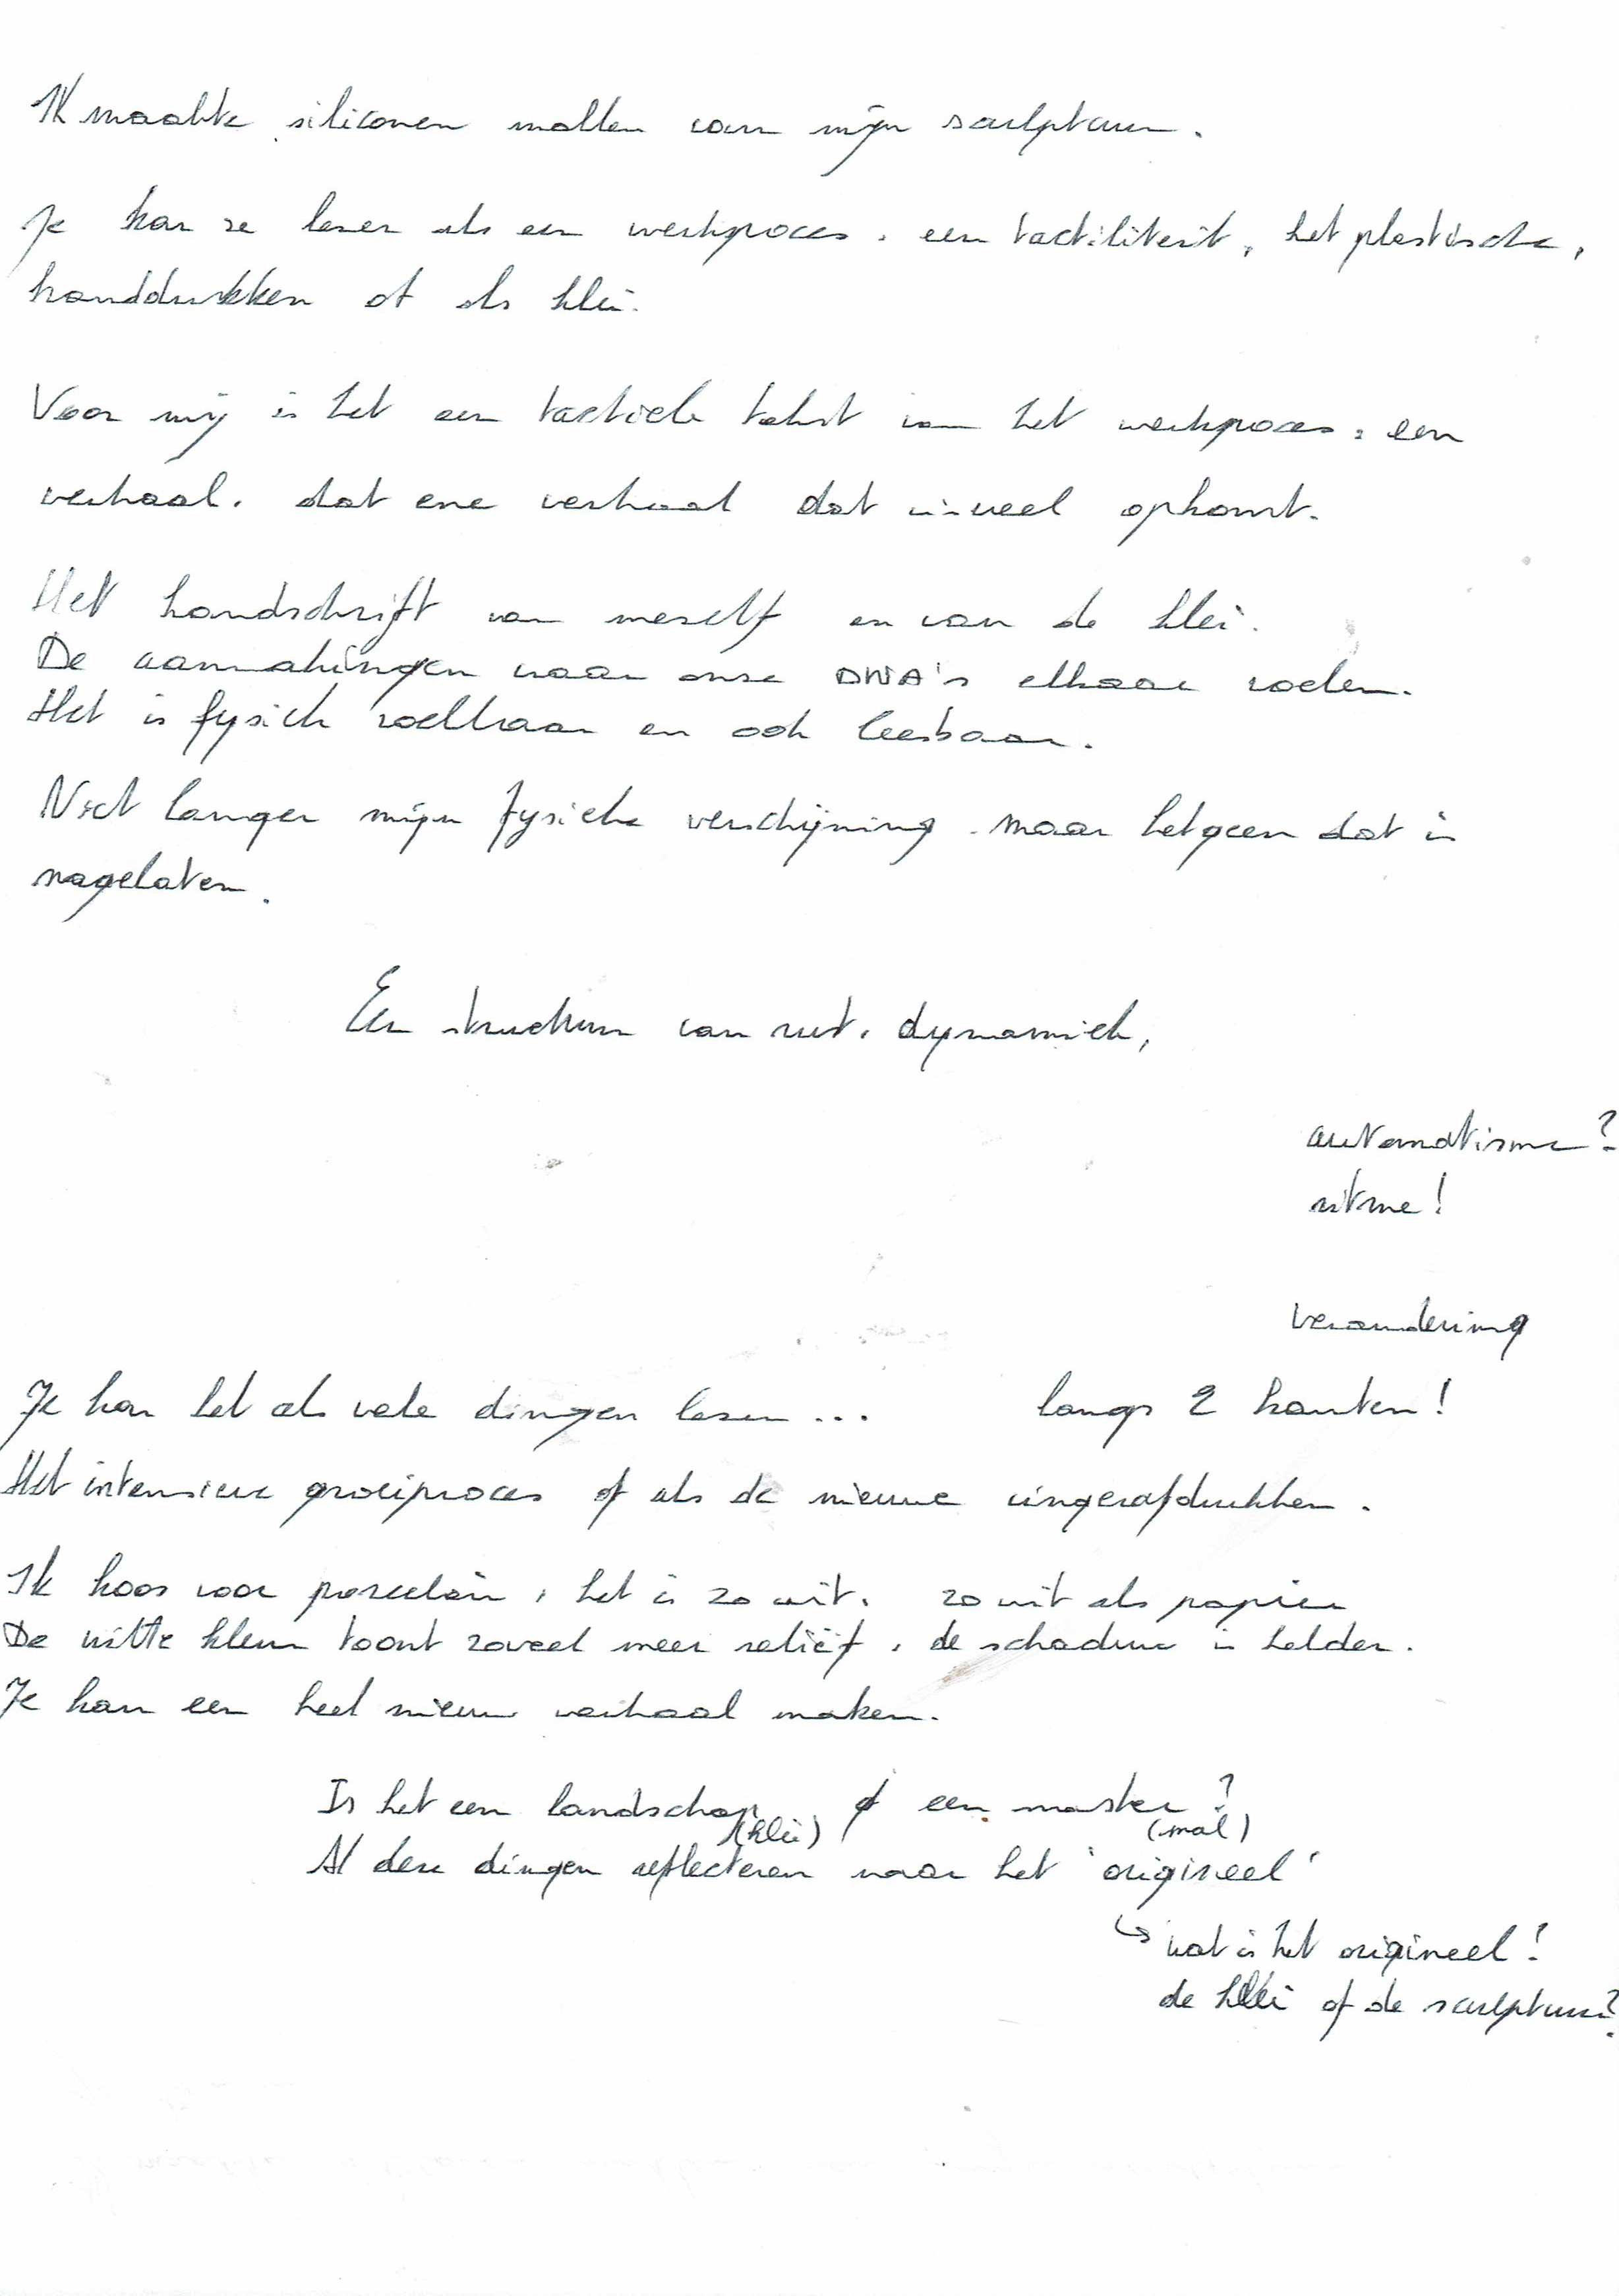 Ik maakte siliconen mallen van mijn sculpturen.
Je kan ze lezen als een werkproces, een tactiliteit, het plastische,
handdrukken of als klei.
Voor mij is het een tactiele tekst van het werkproces, een
verhaal, dat ene verhaal dat visueel opkomt.
Het handschrift van meself en van de klei.
De aanrakingen waar onze DNA's elkaar voelen.
Het is fysiek voelbaar en ook leesbaar.
Niet langer mijn fysieke verschijning, maar hetgeen dat is
nagelaten.
Een structuur van rust, dynamiek,
automatisme?
ritme!
verandering
Je kan het als vele dingen lezen... langs 2 kanten!
Het intensieve groeiproces of als de nieuwe vingerafdrukken.
Ik koos voor porselein, het is zo wit, zo wit als papier
De witte kleur toont zoveel meer reliëf, de schaduw is helder.
Je kan een heel nieuw verhaal maken.
Is het een landschap of een master?
(klei) (mal)
Al deze dingen reflecteren naar het 'origineel'
↳ wat is het origineel?
de klei of de sculptuur?